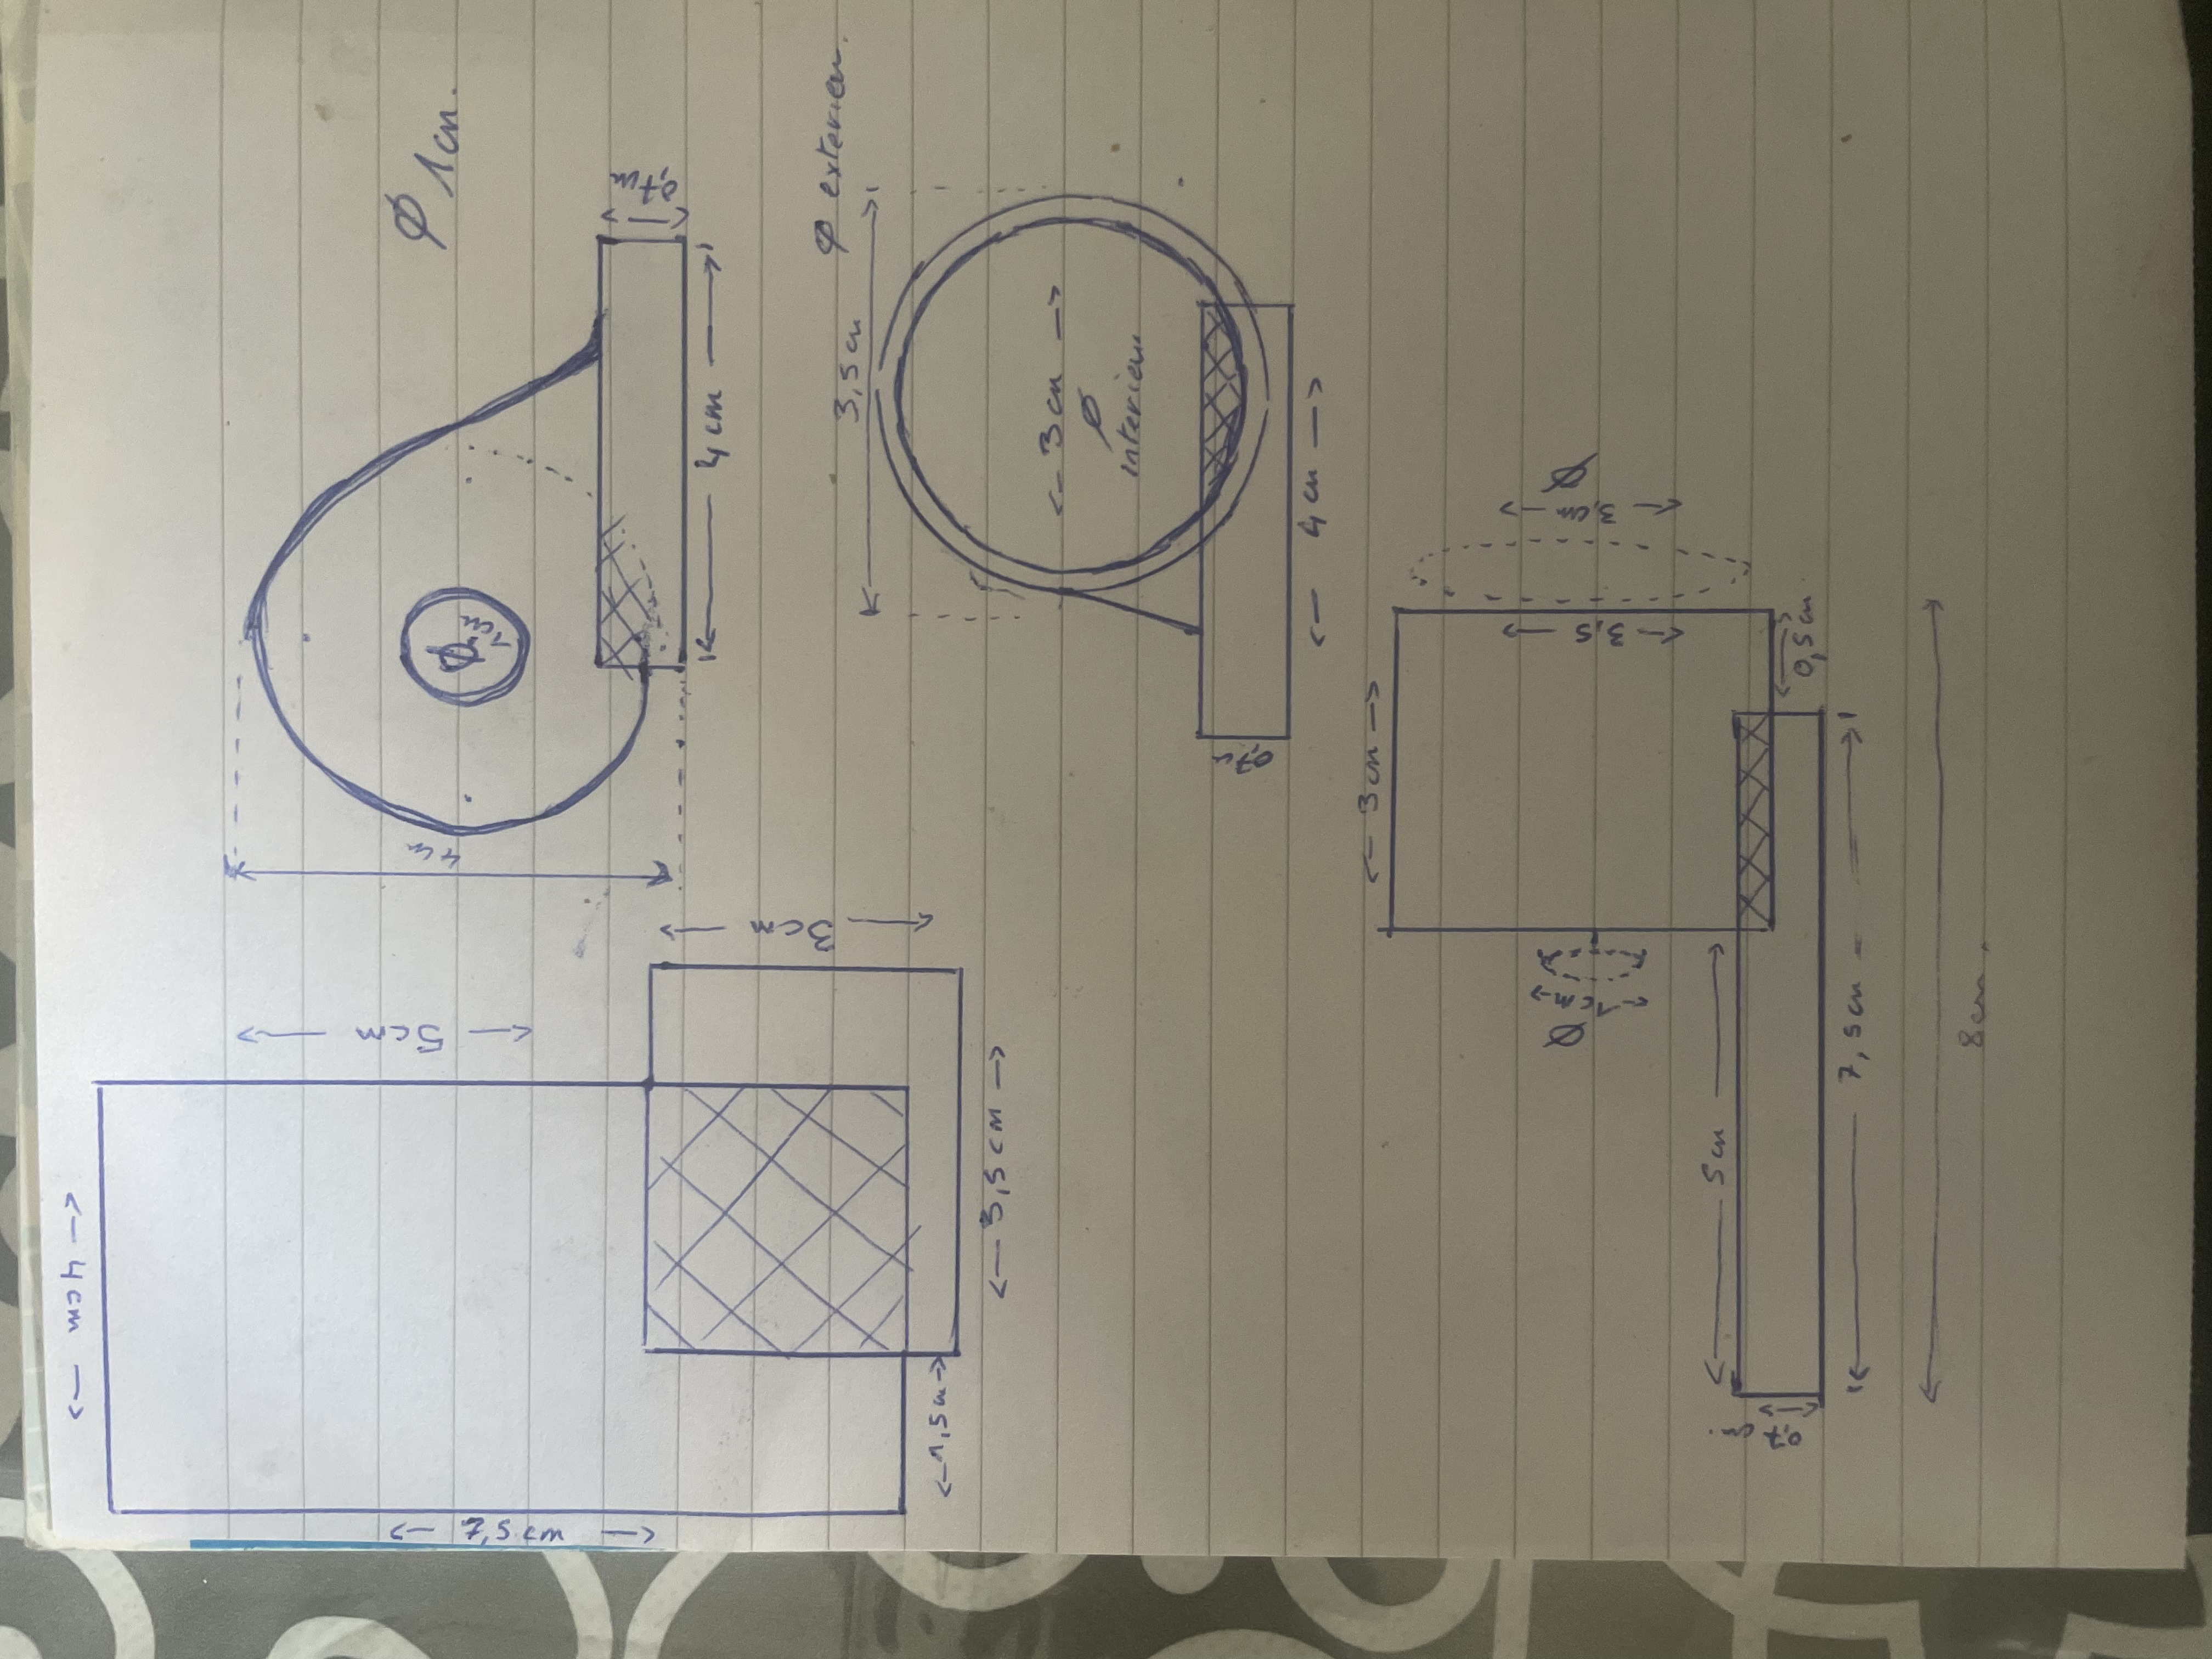 4cm
7,5cm
5cm
3cm
1,5cm
3,5cm
4cm
Ø
1cm
Ø 1cm.
0,7cm
4cm
Ø exterieur.
3,5cm
3cm
Ø
interieur
0,7cm
4cm
3cm
Ø
1cm
3,5
3,cm
Ø
5cm
0,7cm.
0,5cm
7,5cm
8cm.